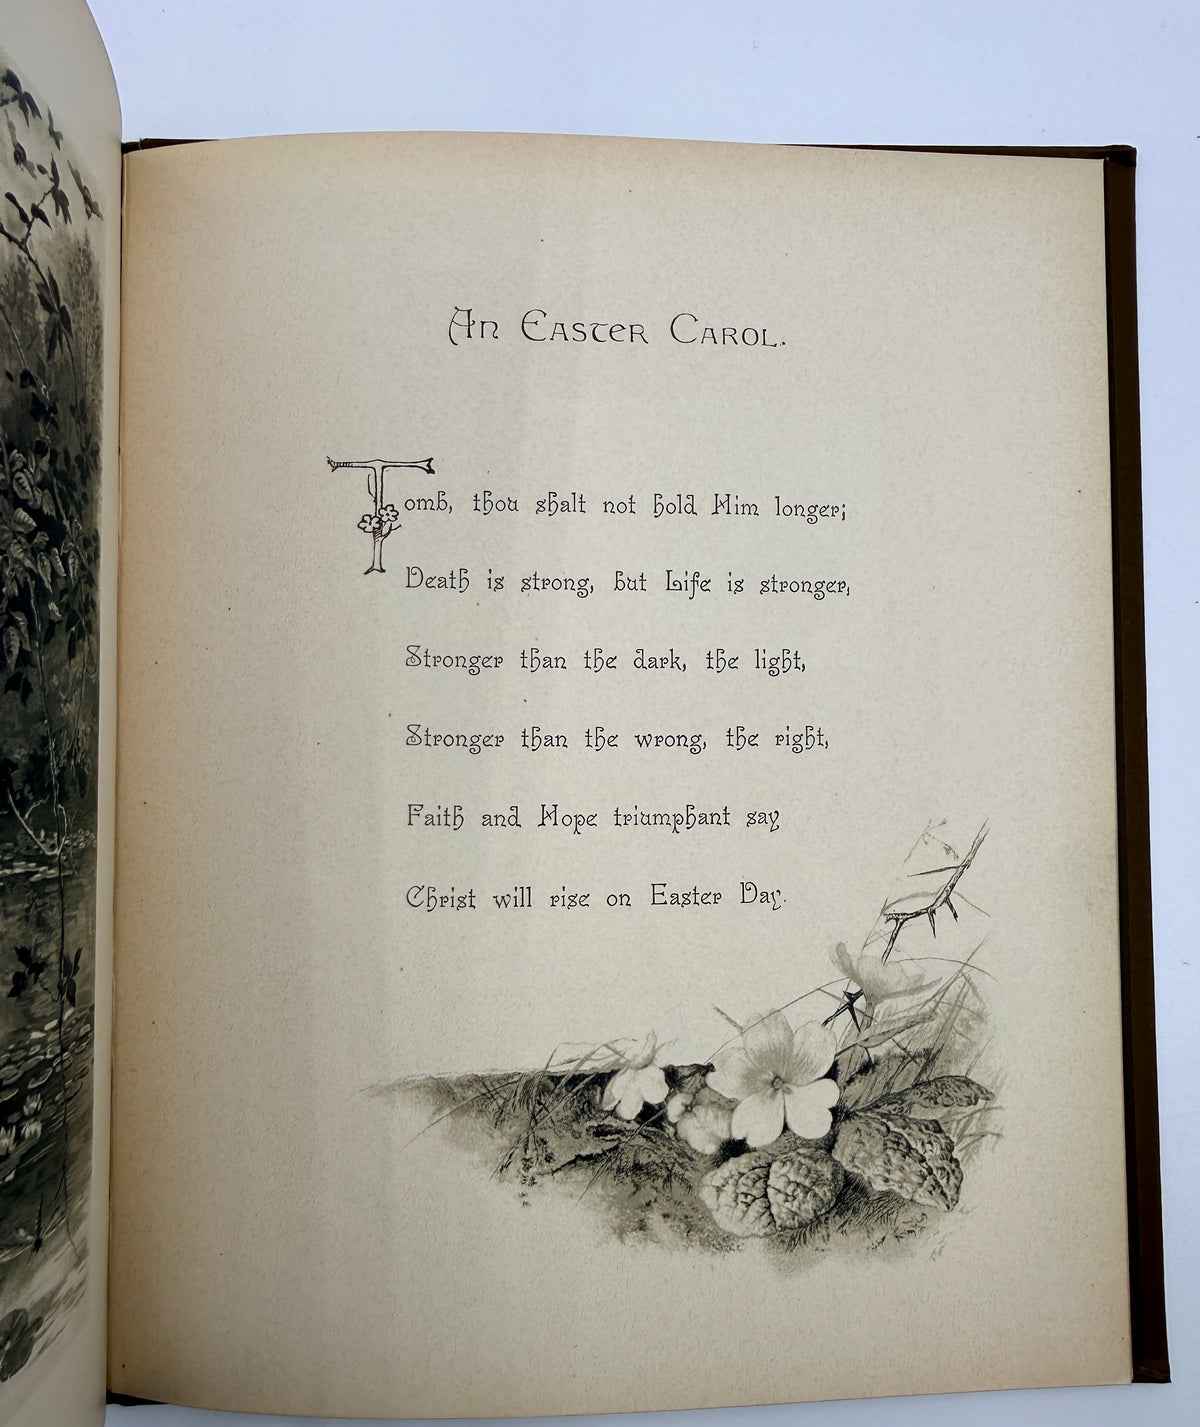 An Easter Carol.
Tomb, thou shalt not hold Him longer;
Death is strong, but Life is stronger;
Stronger than the dark, the light,
Stronger than the wrong, the right,
Faith and Hope triumphant say
Christ will rise on Easter Day.